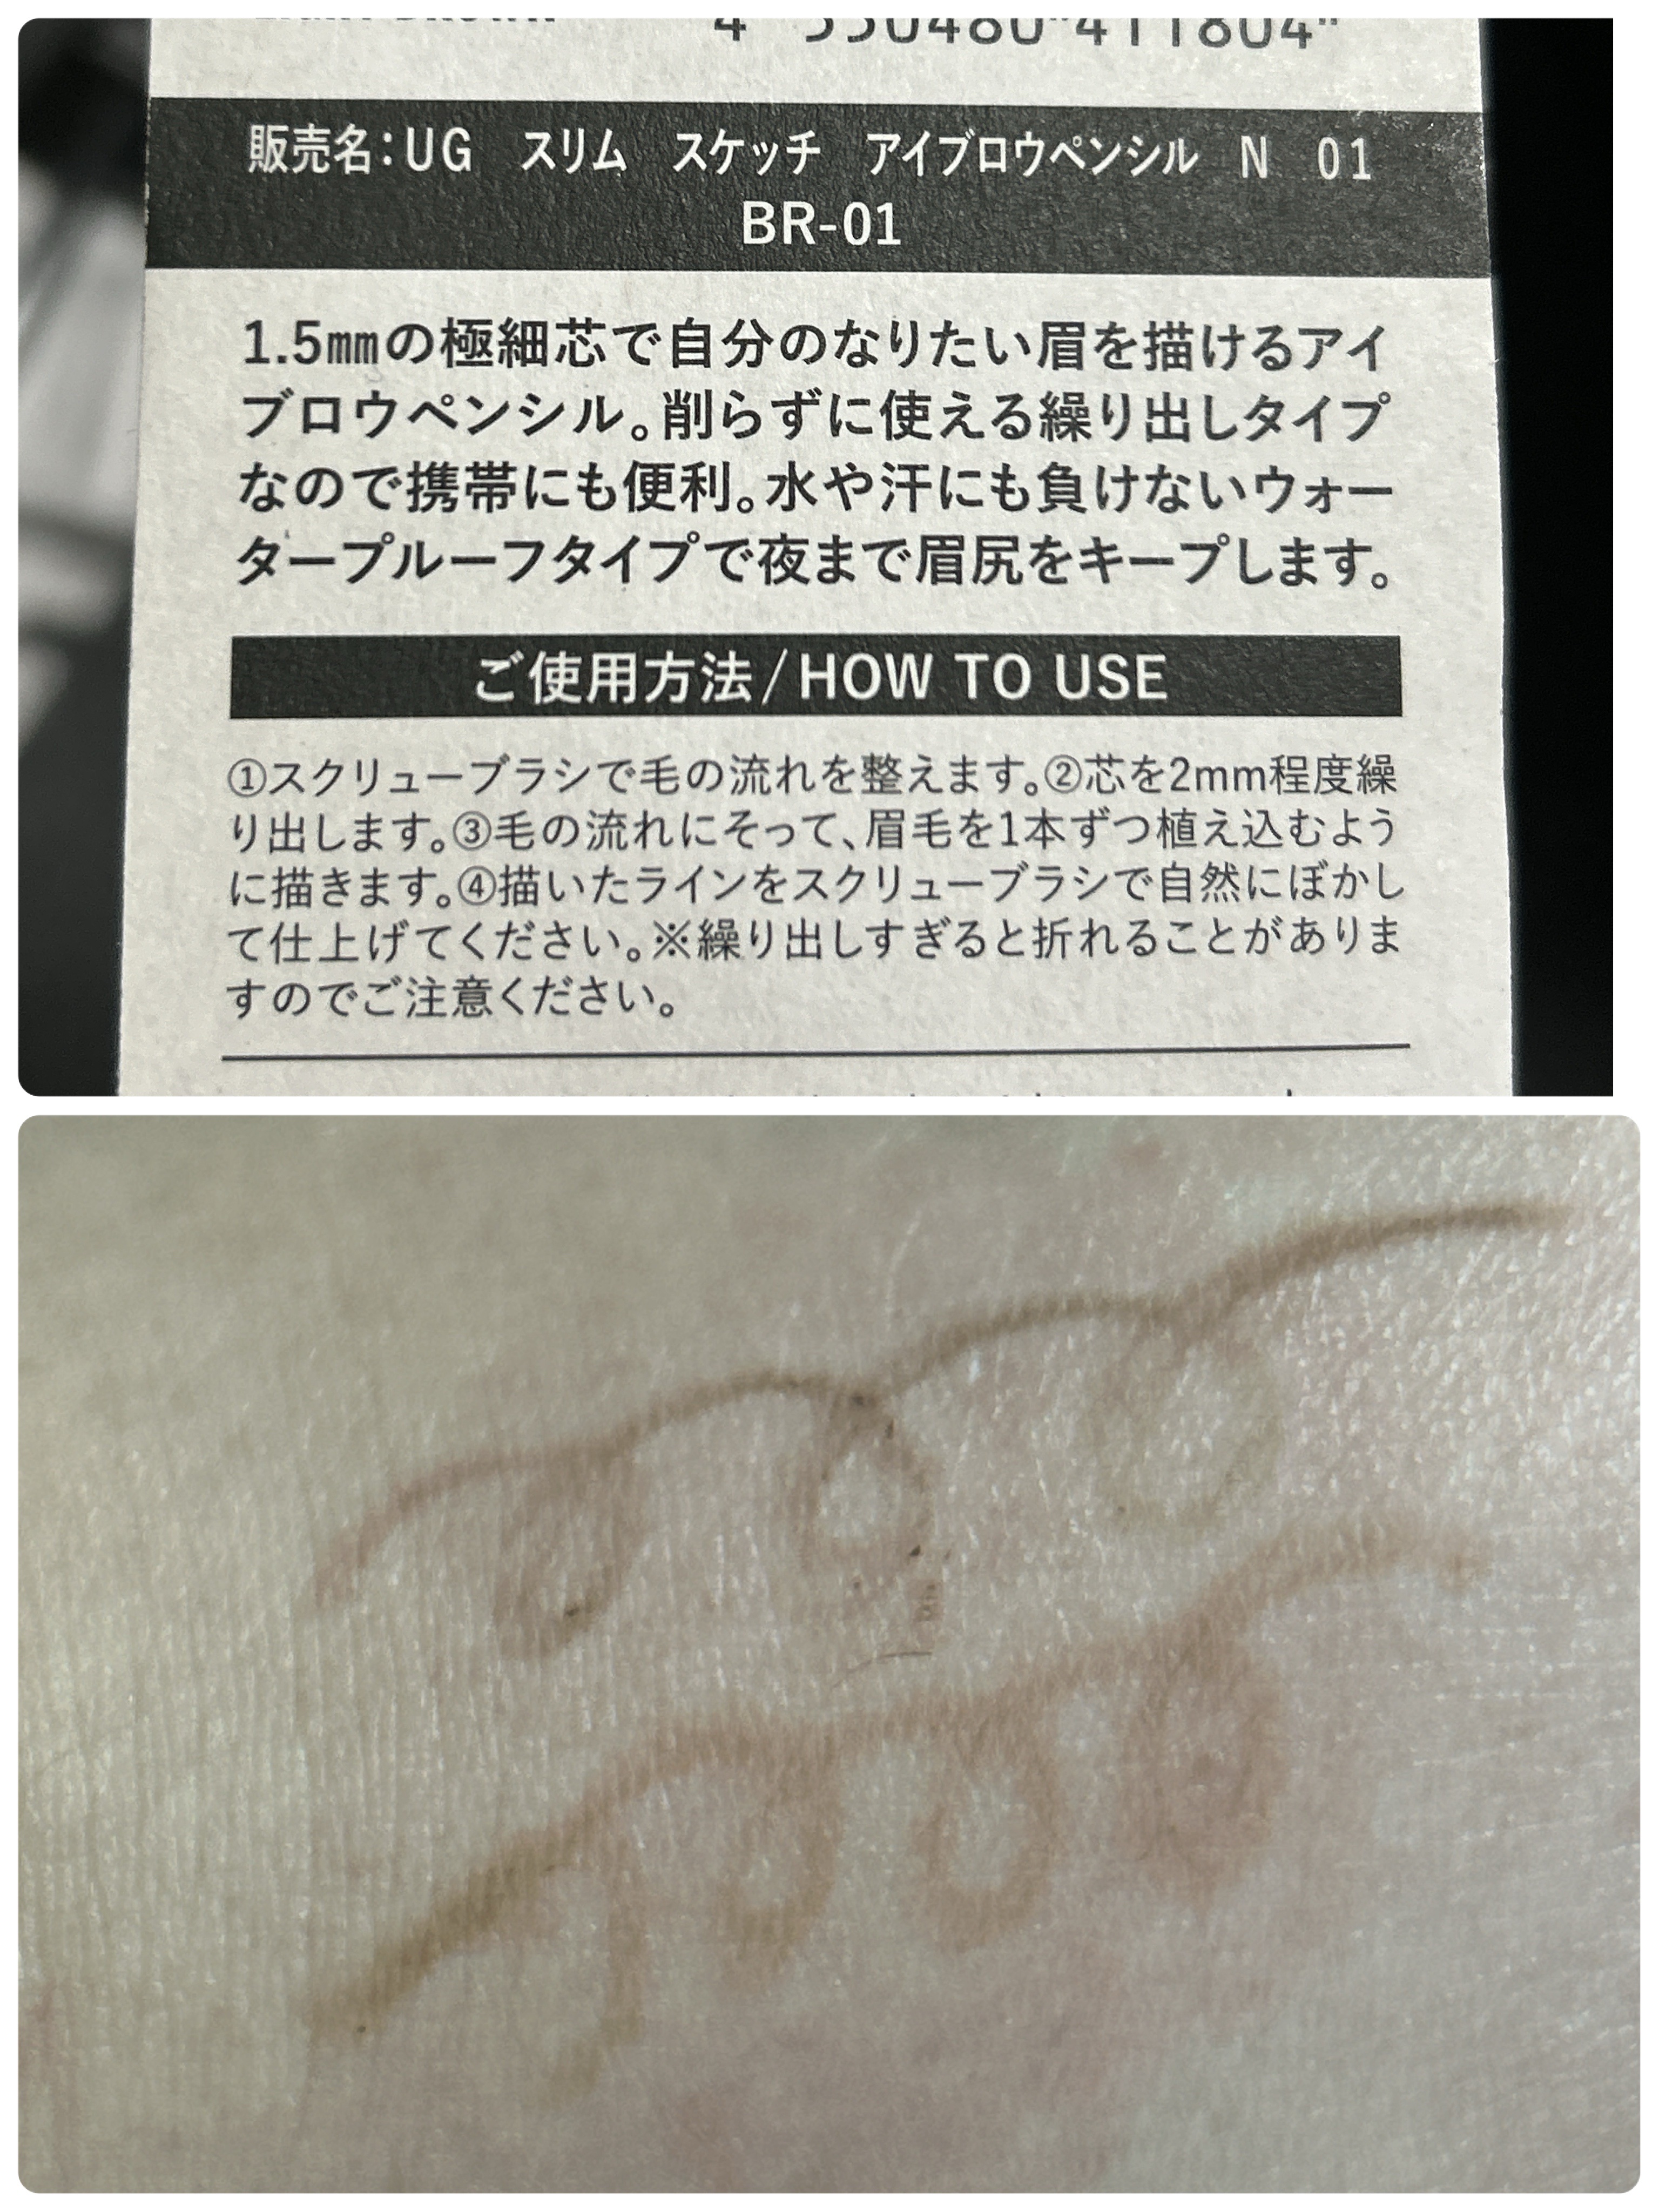 4 550480 411804
販売名：UG　スリム　スケッチ　アイブロウペンシル　N　01
BR-01
1.5㎜の極細芯で自分のなりたい眉を描けるアイ
ブロウペンシル。削らずに使える繰り出しタイプ
なので携帯にも便利。水や汗にも負けないウォー
タープルーフタイプで夜まで眉尻をキープします。
ご使用方法/HOW TO USE
①スクリューブラシで毛の流れを整えます。②芯を2mm程度繰
り出します。③毛の流れにそって、眉毛を1本ずつ植え込むよう
に描きます。④描いたラインをスクリューブラシで自然にぼかし
て仕上げてください。※繰り出しすぎると折れることがありま
すのでご注意ください。